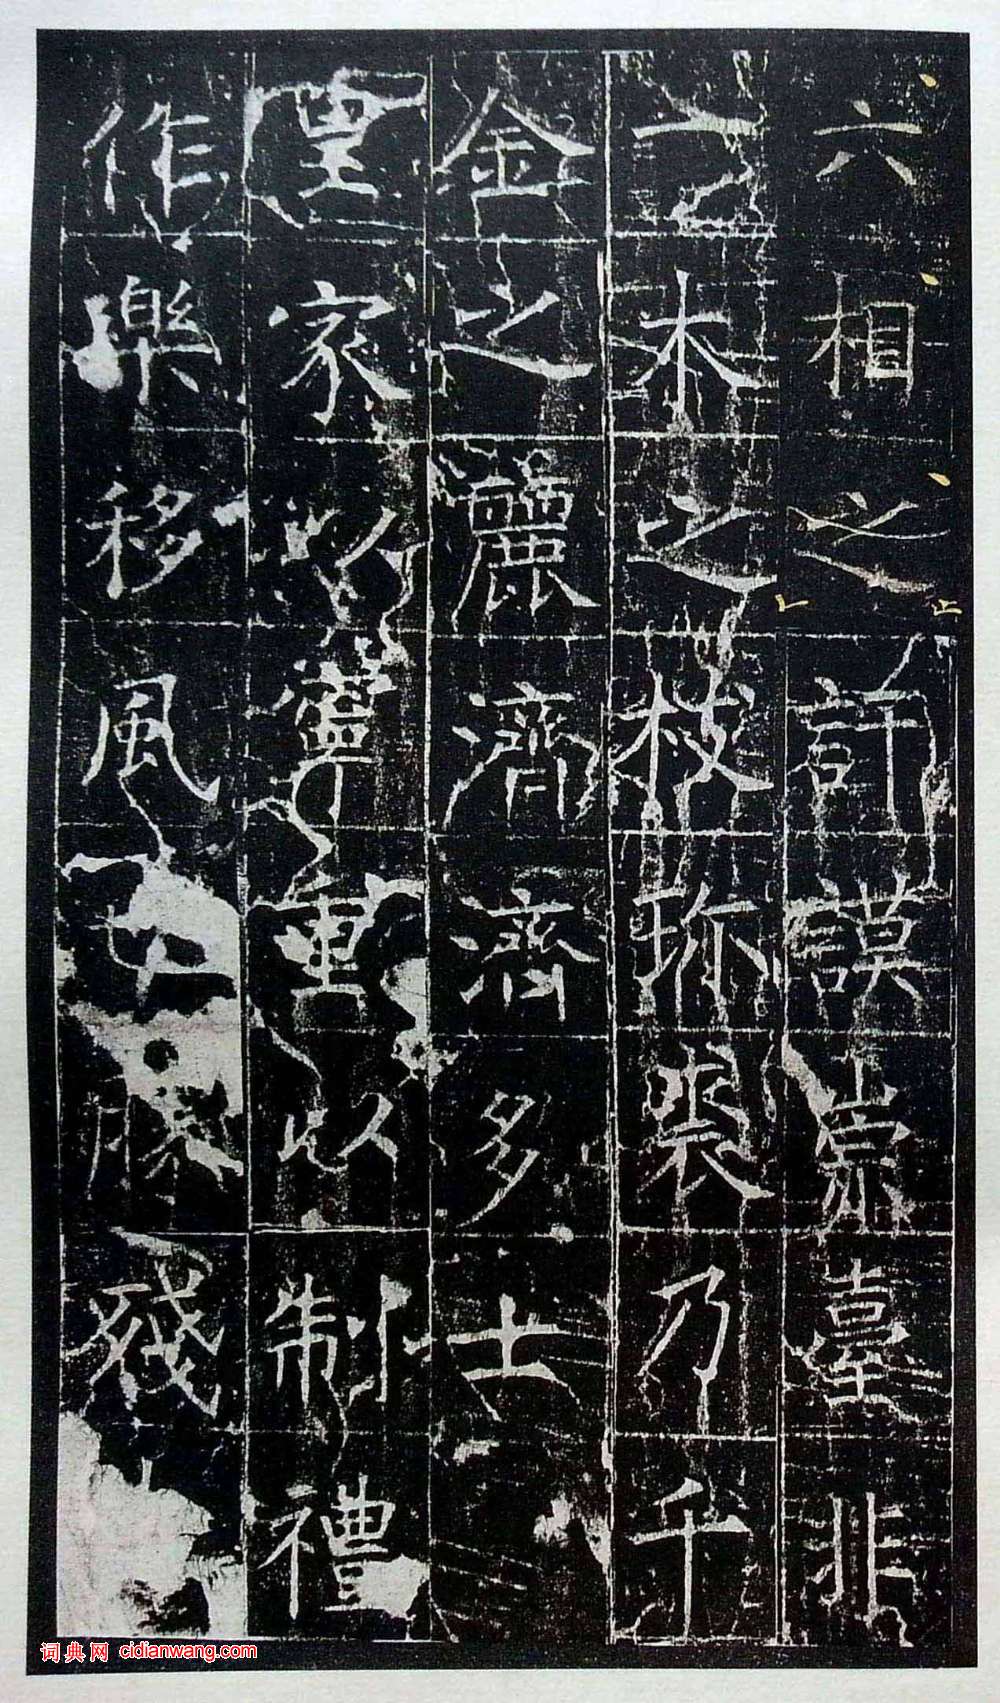 六相之訏謨崇臺非
一木之枝珎裘乃千
金之麗濟濟多士
皇家以寧重以制禮
作樂移風勝殘
词典网 cidianwang.com